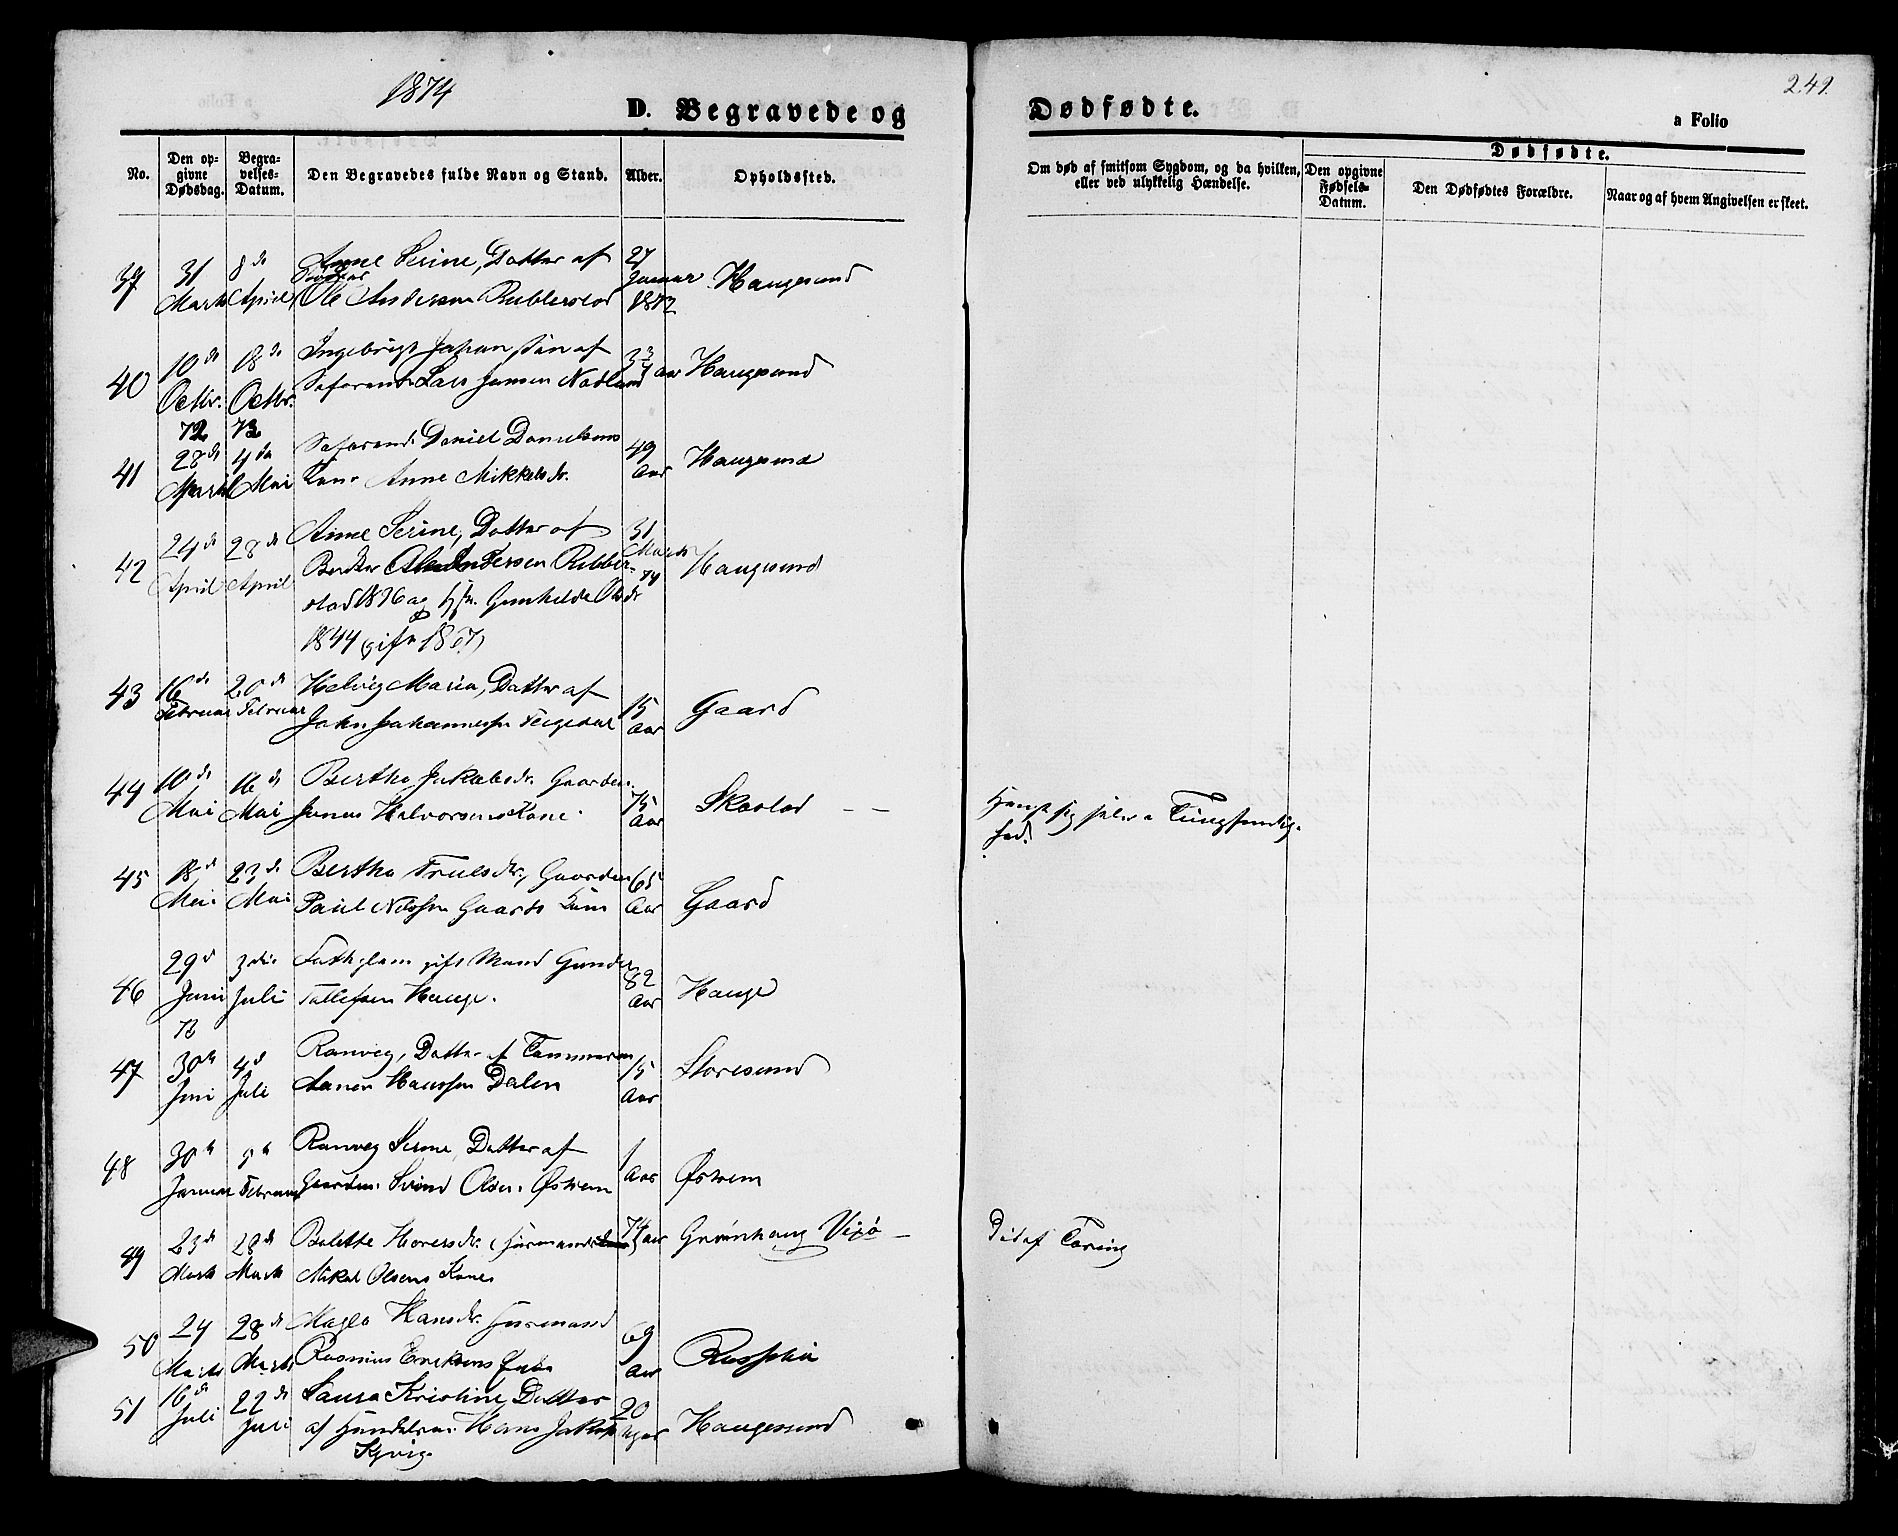 1874
D. Begravede og
No.
Den opgivne Dødsdag.
Begravelses-Datum.
Den Begravedes fulde Navn og Stand.
Alder.
Opholdssted.
249.
Dødfødte.
a Folio
Om død af smitsom Sygdom, og da hvilken,
eller ved ulykkelig Hændelse.
Dødfødte.
Den opgivne Fødsels-Datum.
Den Dødfødtes Forældre.
Naar og af hvem Angivelsen er skeet.
39 31 Marts 8de April
Anne Serine, Datter af
Ole Andersen
27 Januar 1872
Haugesund
40 10de Octbr. 72 18de Octbr. 73
Ingebrigt Johan, Søn af
Søfarende Lars Jansen
Haugesund
41 28de 4de Mai
Søfarende Daniel Danielsens
Kone Anne Mikkelsdr.
49 Aar
Haugesund
42 24de April 28de April
Anne Serine, Datter af
Andersen Rabber-
stad 1836 og Gunhilde Olsdr
1844 gift 1867
31 Marts 74
Haugesund
43 16de Februar 20de Februar
Helvig Maria, Datter af
John Johannessen
15 Aar
Gaard
44 10de Mai 16de Mai
Bertha Jakobsdr. Gaardm.
Jonas Halvorsens Kone.
75 Aar
Skastad
Hængt sig selv
Tungsindig-
hed.
45 18de Mai 23de Mai
Bertha Trulsdr, Gaardm
Paul Nilssen Gaards Kone
65 Aar
Gaard
46 29de Juni 73 3die Juli
gift Mand Gunder
Tollefsen Hauge.
82 Aar
Hauge
47 30te Juni 4de Juli
Ranveg, Datter af Tømmermand
Hanssen Dalen
15 Aar
Storesund
48 30te Januar 5te Februar
Ranveg Serine, Datter af
Gaardm. Svend Olsen Østrem
1 Aar
Østrem
49 23de Marts 28de Marts
Bolette
Mikal Olsens Kone
74 Aar
Grønhaug Vixø
Død af Tæring
50 24 Marts 28de Marts
Magla Hansdr. Huusmand
Rasmus Eriksens Enke
69 Aar
51 16de Juli 22de Juli
Laura Kristine, Datter
af Handelsm. Hans Jakob
Kyvig.
20 Uger
Haugesund